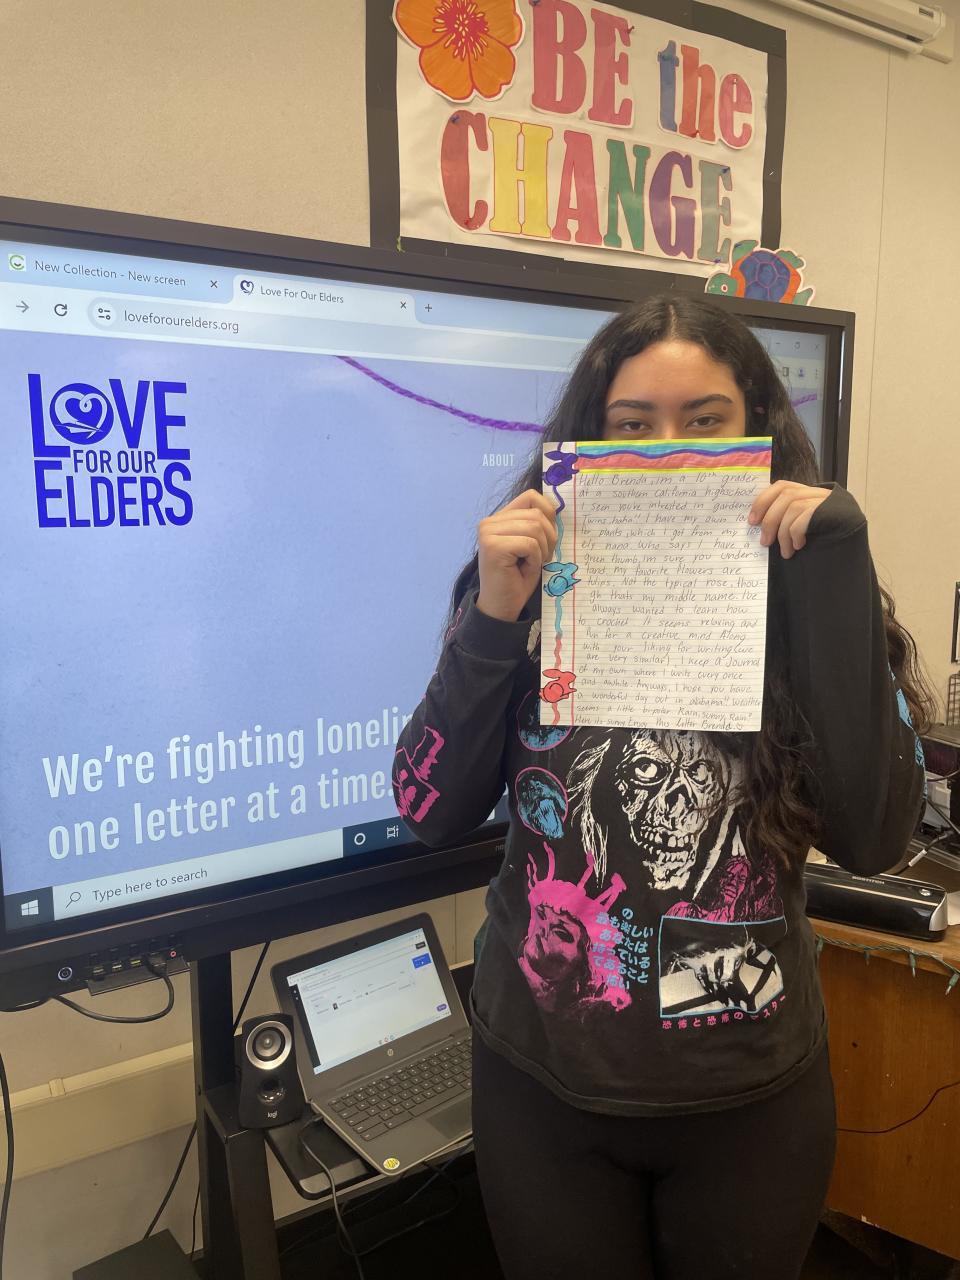 BE the
CHANGE
New Collection - New screen
Love For Our Elders
loveforourelders.org
LOVE
FOR OUR
ELDERS
ABOUT
We're fighting
one letter at a time.
Type here to search
Hello Brenda, im a 10th grader
at a southern california highschool
seen you're intrested in gardening
Twins haha!! I have my own
for plants, which I got from my
ely nana who says I have a
green thumb, im sure you unders-
tand, my favorite flowers are
tulips, Not the typical rose, thou-
gh thats my middle name. I've
always wanted to learn how
to crochet It seems relaxing and
fun for a creative mind Along
with your liking for writing (we
are very similar), I keep a Journal
of my own where I write every once
and awhile. Anyways, I hope you have
a wonderful day out in alabama!! Weather
seems a little bipolar Rain, sunny, Rain?
Here its sunny Enjoy this letter Brenda
の
最も楽しい
あなたは
持っている
であること
怖い
恐怖と恐怖の スター
logi
hp